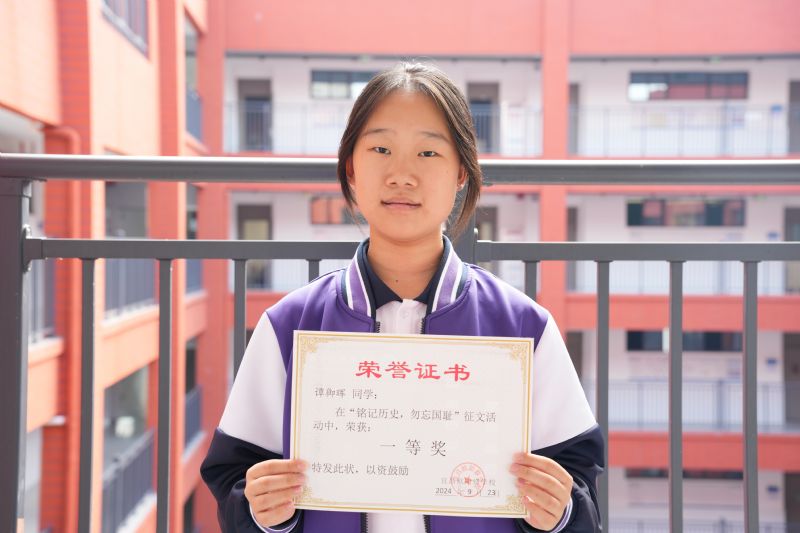 荣誉证书
谭御晖 同学：
在“铭记历史，勿忘国耻”征文活
动中，荣获：
一等奖
特发此状，以资鼓励
2024 年 9 月 23